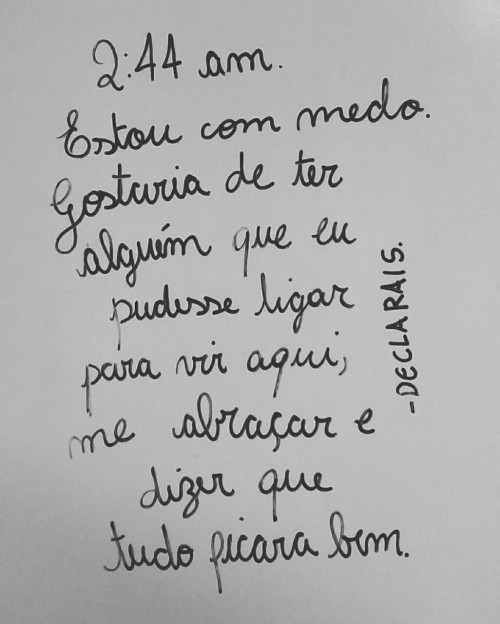 2:44 am.
Estou com medo.
Gostaria de ter
alguém que eu
pudesse ligar
para vir aqui,
me abraçar e
dizer que
tudo ficara bem.
-DECLARAIS.